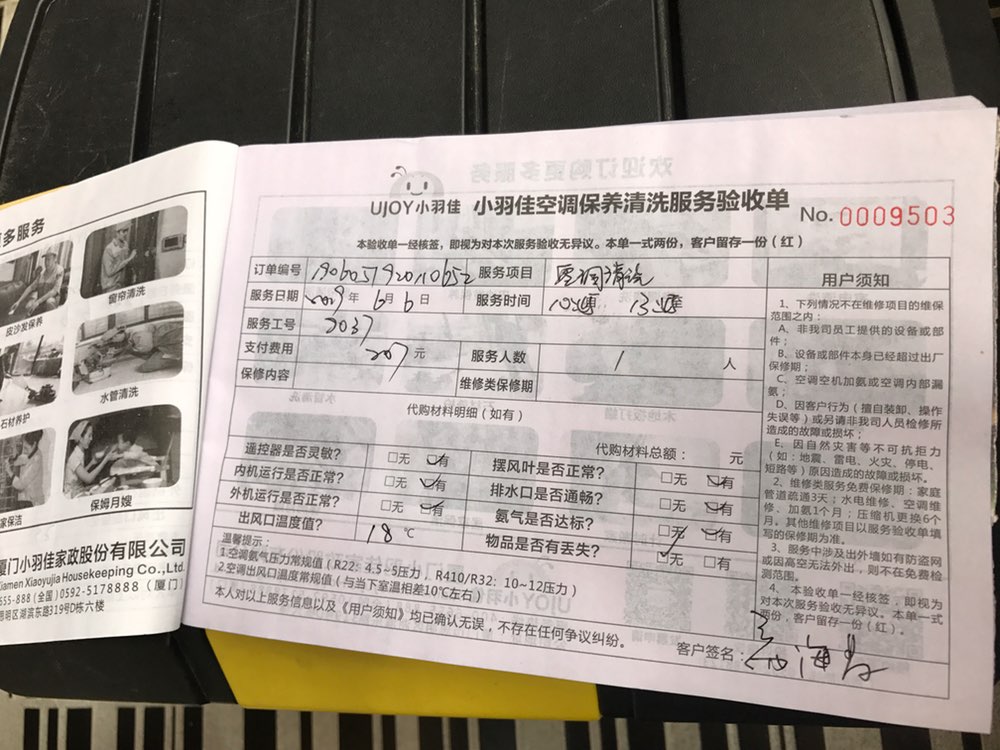 多服务
皮沙发保养
窗帘清洗
石材养护
水管清洗
家保洁
保姆月嫂
厦门小羽佳家政股份有限公司
iamen Xiaoyujia Housekeeping Co.,Ltd.
555-888 (全国) 0592-5178888 (厦门)
思明区湖滨东路319号D栋六楼
欢迎订购更多服务
UJOY小羽佳
小羽佳空调保养清洗服务验收单
No. 0009503
本验收单一经核签，即视为对本次服务验收无异议。本单一式两份，客户留存一份（红）
订单编号 190605192010652 服务项目 空调清洗
服务日期 2019年 6月 6日 服务时间
服务工号 2037
支付费用 207 元 服务人数 1 人
保修内容 维修类保修期
代购材料明细（如有）
代购材料总额： 元
遥控器是否灵敏? □无 □有 摆风叶是否正常? □无 □有
内机运行是否正常? □无 □有 排水口是否通畅? □无 □有
外机运行是否正常? □无 □有 氨气是否达标? □无 □有
出风口温度值? 18 ℃ 物品是否有丢失? □无 □有
温馨提示：
1.空调氨气压力常规值（R22：4.5~5压力，R410/R32：10~12压力）
2.空调出风口温度常规值（与当下室温相差10℃左右）
本人对以上服务信息以及《用户须知》均已确认无误，不存在任何争议纠纷。
客户签名：
用户须知
1、下列情况不在维修项目的维保
范围之内：
A、非我司员工提供的设备或部
件；
B、设备或部件本身已经超过出厂
保修期；
C、空调空机加氨或空调内部漏
氨；
D、因客户行为（擅自装卸、操作
失误等）或另请非我司人员检修所
造成的故障或损坏；
E、因自然灾害等不可抗拒力
（如：地震、雷电、火灾、停电、
短路等）原因造成的故障或损坏。
2、维修类服务免费保修期：家庭
管道疏通3天；水电维修、空调维
修、加氨1个月；压缩机更换6个
月。其他维修项目以服务验收单填
写的保修期为准。
3、服务中涉及出外墙如有防盗网
或因高空无法外出，则不在免费检
测范围。
4、本验收单一经核签，即视为
对本次服务验收无异议。本单一式
两份，客户留存一份（红）。